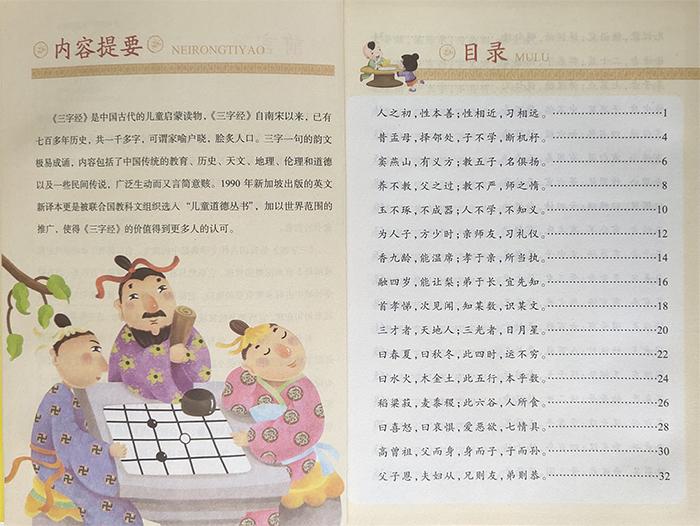 内容提要
NEIRONGTIYAO
《三字经》是中国古代的儿童启蒙读物，《三字经》自南宋以来，已有
七百多年历史，共一千多字，可谓家喻户晓，脍炙人口。三字一句的韵文
极易成诵，内容包括了中国传统的教育、历史、天文、地理、伦理和道德
以及一些民间传说，广泛生动而又言简意赅。1990 年新加坡出版的英文
新译本更是被联合国教科文组织选入“儿童道德丛书”，加以世界范围的
推广，使得《三字经》的价值得到更多人的认可。
目录
MULU
人之初，性本善；性相近，习相远。 1
昔孟母，择邻处，子不学，断机杼。 4
窦燕山，有义方；教五子，名俱扬。 6
养不教，父之过；教不严，师之惰。 8
玉不琢，不成器；人不学，不知义。 10
为人子，方少时；亲师友，习礼仪。 12
香九龄，能温席；孝于亲，所当执。 14
融四岁，能让梨；弟于长，宜先知。 16
首孝悌，次见闻，知某数，识某文。 18
三才者，天地人；三光者，日月星。 20
曰春夏，曰秋冬，此四时，运不穷。 22
曰水火，木金土，此五行，本乎数。 24
稻粱菽，麦黍稷；此六谷，人所食。 26
曰喜怒，曰哀惧，爱恶欲，七情具。 28
高曾祖，父而身，身而子，子而孙。 30
父子恩，夫妇从，兄则友，弟则恭。 32